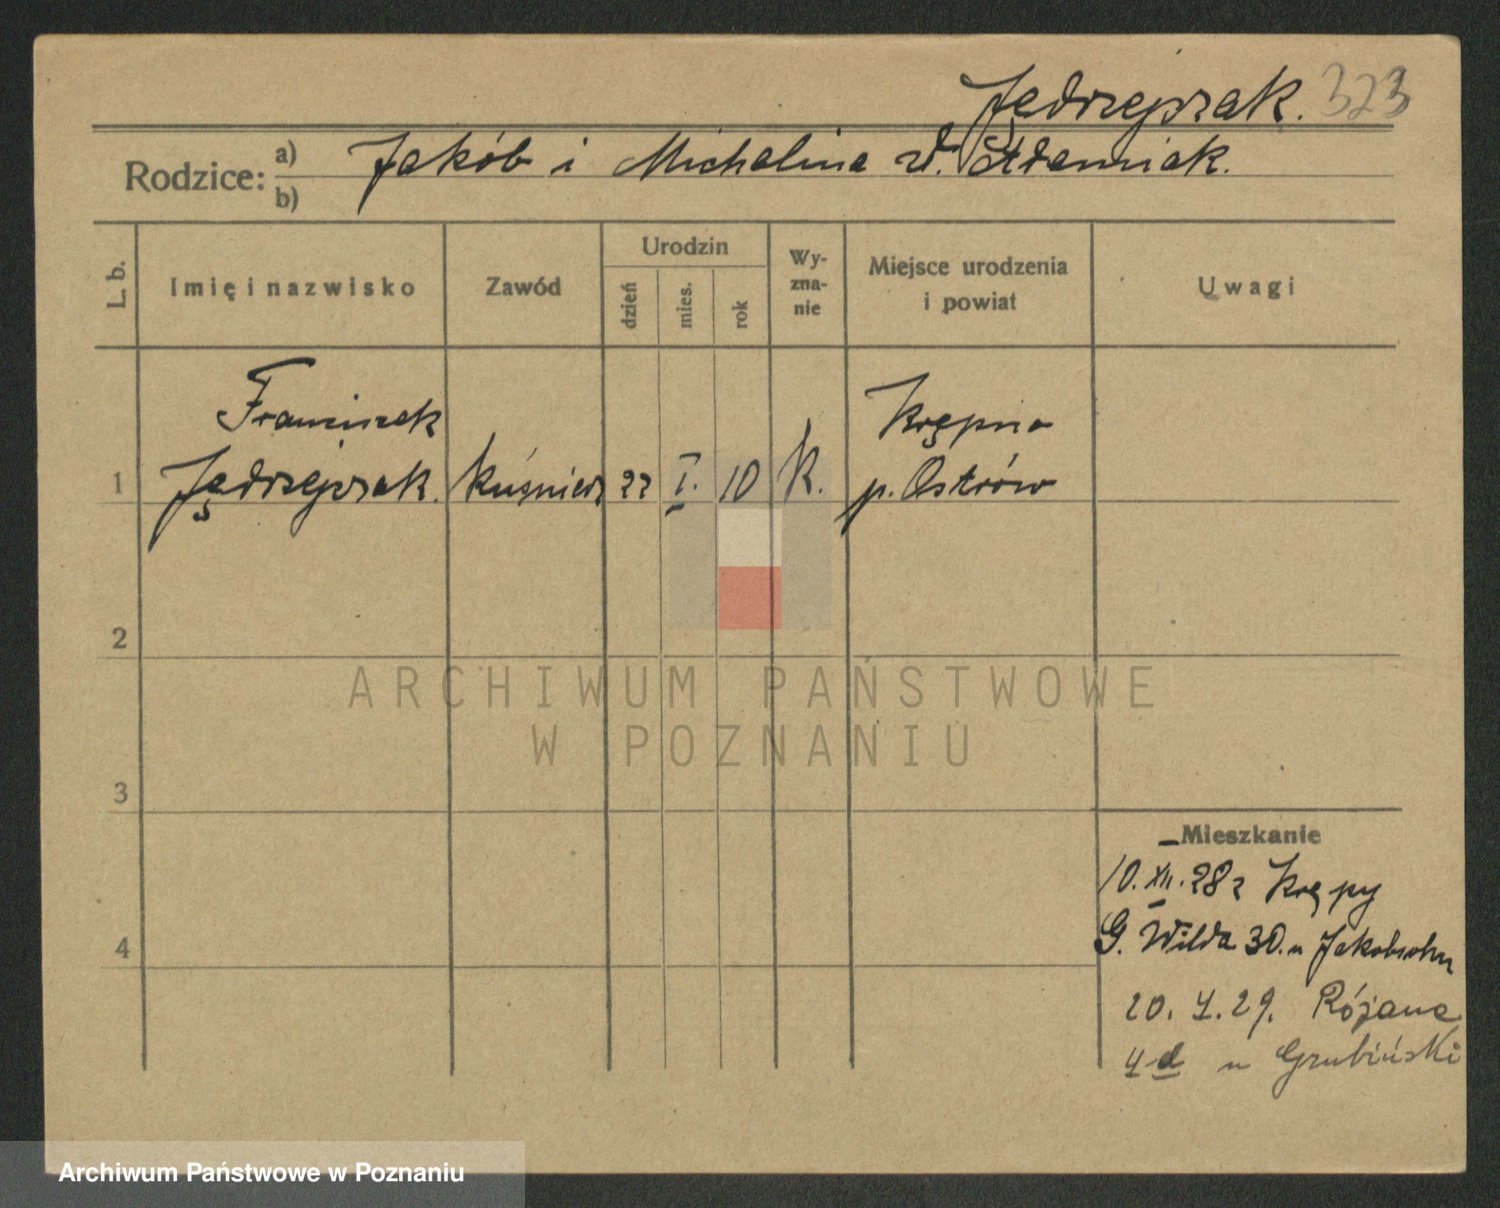 Jędrzejczak. 323
Rodzice: a) Jakób i Michalina z d. Adamiak.
b)
L. b.
Imię i nazwisko
Zawód
Urodzin
dzień
mies.
rok
Wy-
zna-
nie
Miejsce urodzenia
i powiat
Uwagi
Franciszek Krępna
1 Jędrzejczak. kuśnierz 22 I. 10 K. p. Ostrów
2
ARCHIWUM PAŃSTWOWE
W POZNANIU
3
Mieszkanie
10. XII. 28 z Krępy
4 G. Wilda 30. u Jakobsohn
20. 4. 29. Różana
4d u Grubiński
Archiwum Państwowe w Poznaniu